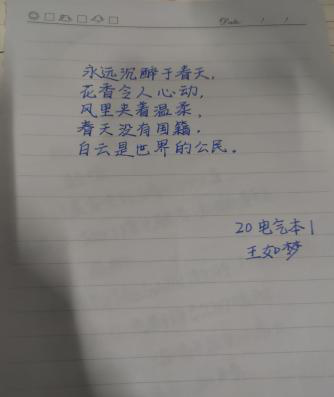 Date: / /
永远沉醉于春天,
花香令人心动,
风里夹着温柔,
春天没有国籍.
白云是世界的公民。
20电气本1
王如梦